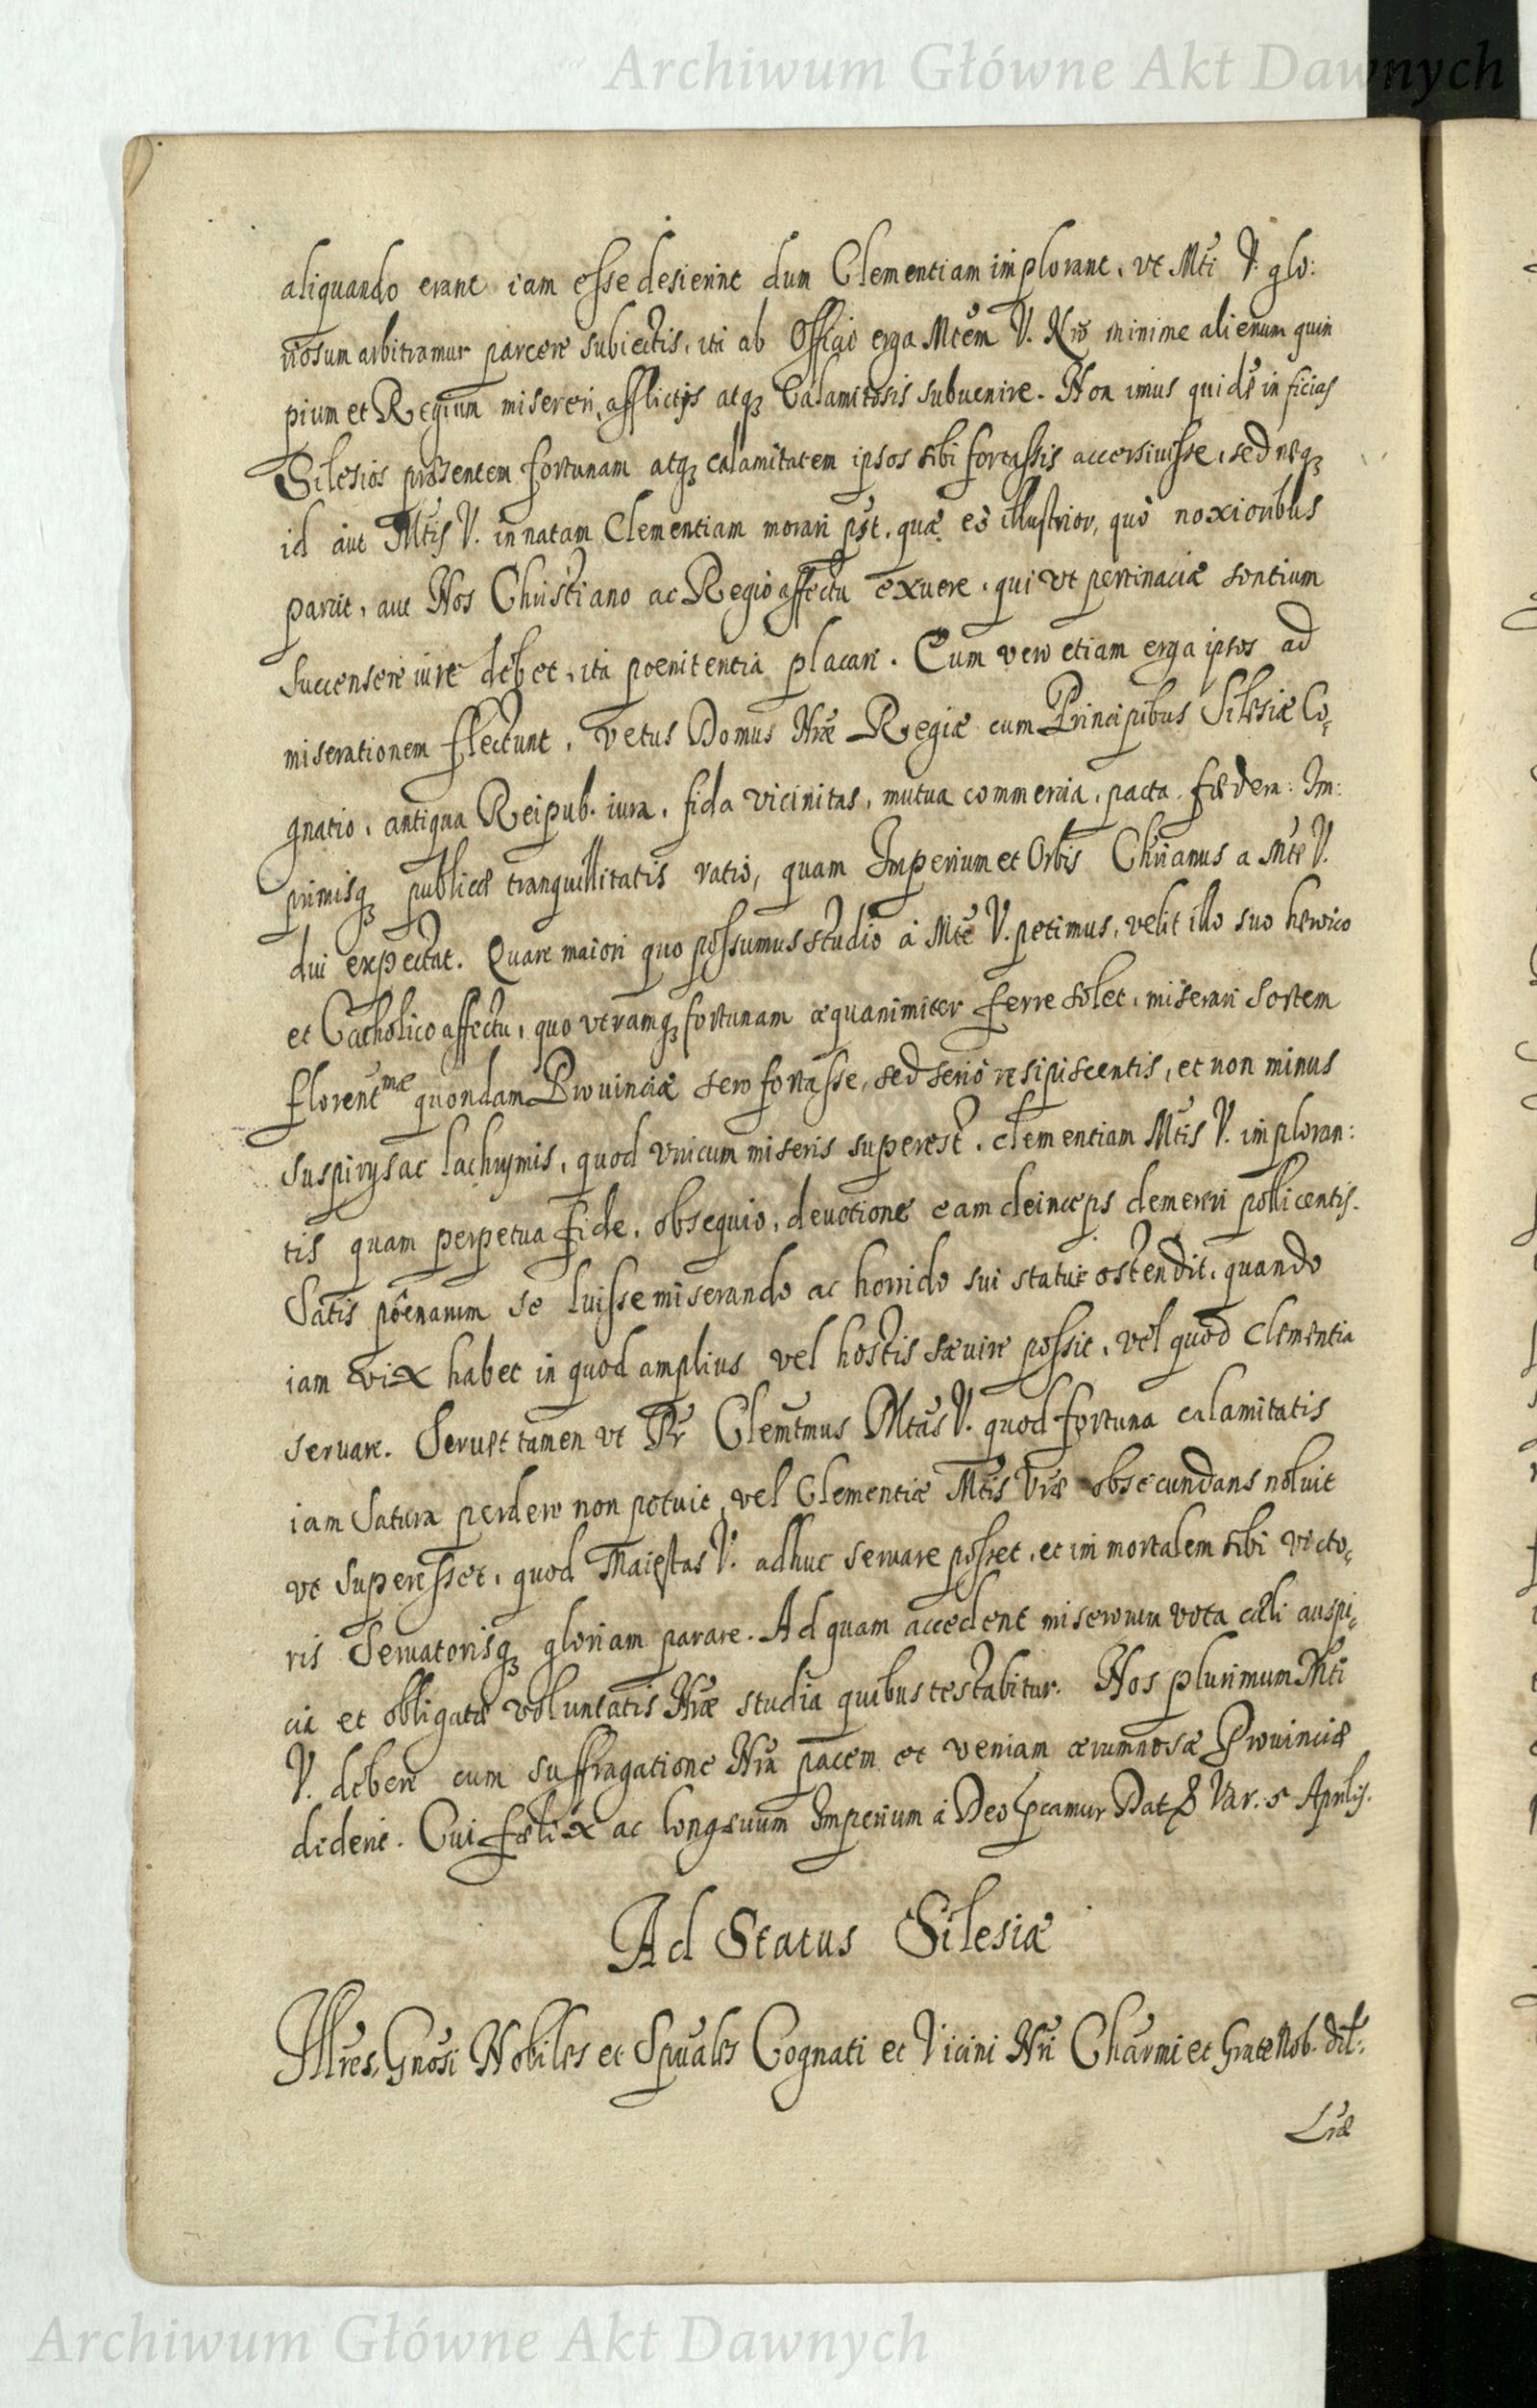 Archiwum Główne Akt Dawnych
aliquando erant iam esse desierint dum Clementiam implorant, ut Mti V. glo:
riosum arbitramur parcere subiectis, ita ab Officio erga Mtem V. Nro minime alienum quin
pium et Regium misereri, afflictis atq3 Calamitosis subuenire. Non imus quidē in ficias
Silesios præsentem fortunam atq3 calamitatem ipsos sibi fortassis accersiuisse, sed neq3
id aut Mtis V. innatam Clementiam morari pōt, quæ eò illustrior, quò noxioribus
parcit, aut Nos Christiano ac Regio affectu exuere, qui ut pertinaciæ sontium
succensere iure debet, ita poenitentia placari. Cum vero etiam erga ipsos ad
miserationem flectunt, vetus Domus Nræ Regiæ cum Principibus Silesiæ Co,
gnatio, antiqua Reipub. iura, fida vicinitas, mutua commercia, pacta fædera: Im:
primisq3 publicæ tranquillitatis ratio, quam Imperium et Orbis Chrianus a Mte V.
dui expectat. Quare maiori quo possumus studio à Mte V. petimus, velit illo suo heroico
et Catholico affectu, quo utramq3 fortunam æquanimiter ferre solet, miserari sortem
florentmæ quondam Prouinciæ sero fortasse, sed seriò resipiscentis, et non minus
suspirijs ac lachrymis, quod unicum miseris superest, clementiam Mtis V. imploran:
tis quam perpetua fide, obsequio, deuotione eam deinceps demereri pollicentis.
Satis poenarum se luisse miserando ac horrido sui statu ostendit, quando
iam vix habet in quod amplius vel hostis sæuire possit, vel quod Clementia
seruare. Seruet tamen ut Pr Clemtmus Mtas V. quod fortuna calamitatis
iam satura perdere non potuit, vel Clementiæ Mtis Vræ obsecundans noluit
ut superesset, quod Maiestas V. adhuc seruare posset, et immortalem sibi victo,
ris Seruatorisq3 gloriam parare. Ad quam accedent miserorum vota cæli auspi,
cia et obligatæ voluntatis Nræ studia quibus testabitur. Nos plurimum Mti
V. debere cum suffragatione Nra pacem et veniam ærumnosæ Prouinciæ
dederit. Cui fælix ac longæuum Imperium à Deo pcamur Dat Var. 5 Aprilis.
Ad Status Silesiæ
Illres, Gnosi Nobiles et Spuales Cognati et Vicini Nri Charmi et Grate Nob. dil:
Lræ
Archiwum Główne Akt Dawnych